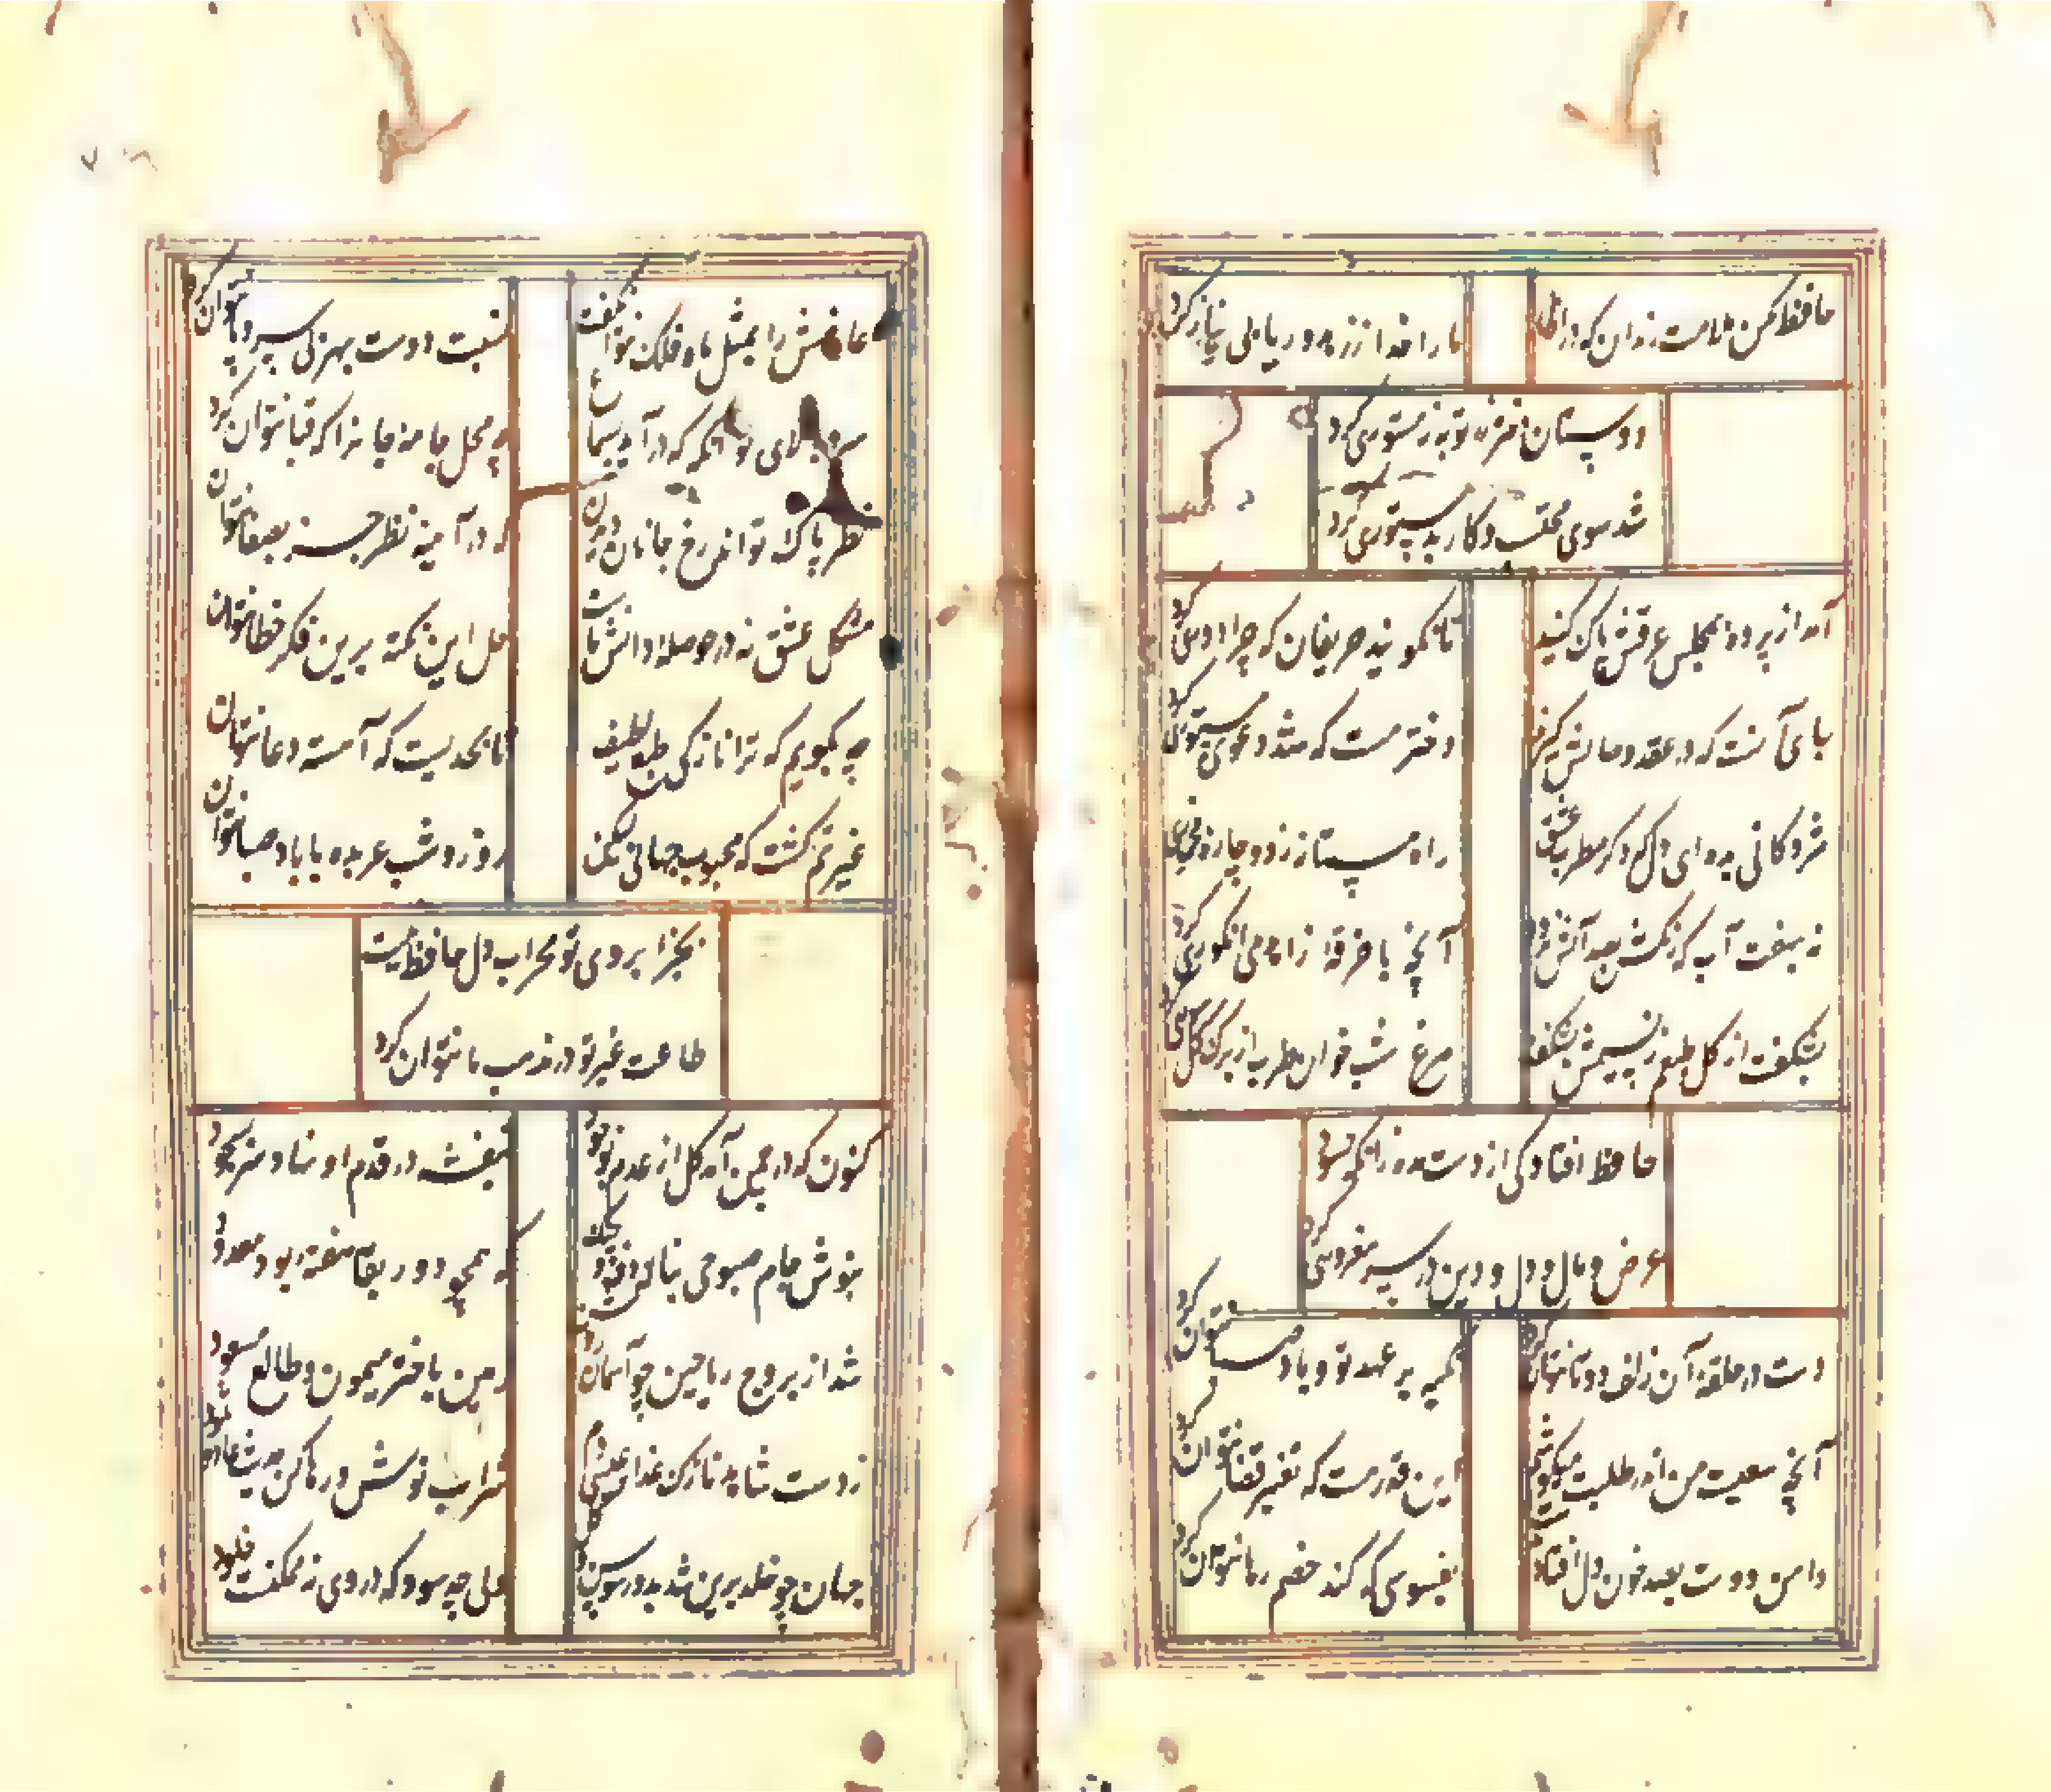 حافظ مکن ملامت رندان که در ازل
ما را خدا ز زهد و ریا بی نیاز کرد
دوستان دختر رز توبه ز مستوری کرد
شد سوی محتسب و کار بدستوری کرد
آمد از پرده بمجلس عرقش پاک کنید
تا نگویند حریفان که چرا دوری کرد
جای آنست که در عقد وصالش گیرند
دختر مست که شد دعوی مستوری کرد
مژدگانی بده ای دل که دگر مطرب عشق
راه مستانه زد و چاره مخموری کرد
نه بهفت آب که رنگش بصد آتش نرود
آنچه با خرقه زاهد می انگوری کرد
بشکفت از گل طبعم ز نسیمش بشکفت
مرغ شب خوان طرب از برگ گل سوری کرد
حافظ افتادگی از دست مده زانکه حسود
عرض و مال و دل و دین در سر مغروری کرد
دست در حلقه آن زلف دوتا نتوان کرد
تکیه بر عهد تو و باد صبا نتوان کرد
آنچه سعیست من اندر طلبت میکوشم
این قدر هست که تغییر قضا نتوان کرد
دامن دوست بصد خون دل افتاد بدست
بفسوسی که کند خصم رها نتوان کرد
عارضش را بمثل ماه فلک نتوان گفت
نسبت دوست بهر بی سر و پا نتوان کرد
سرو بالای تو آنگه که در آید بسماع
چه محل جامه جانرا که قبا نتوان کرد
نظر پاک تواند رخ جانان دیدن
که در آیینه نظر جز بصفا نتوان
مشکل عشق نه در حوصله دانش ماست
حل این نکته برین فکر خطا نتوان
چه بگویم که ترا نازکی طبع لطیف
تا بحدیست که آهسته دعا نتوان
غیرتم کشت که محبوب جهانی لیکن
روز و شب عربده با باد صبا نتوان
بجز ابروی تو محراب دل حافظ نیست
طاعت غیر تو در مذهب ما نتوان کرد
کنون که در چمن آمد گل از عدم بوجود
بنفشه در قدم او نهاد سر بسجود
بنوش جام صبوحی بناله دف و چنگ
شد از بروج ریاحین چو آسمان روشن
زمین باختر میمون و طالع مسعود
ز دست شاهد نازک عذار عیسی دم
شراب نوش و رها کن حدیث عاد و ثمود
جهان چو خلد برین شد بدور سوسن و گل
ولی چه سود که در وی نه ممکنست خلود